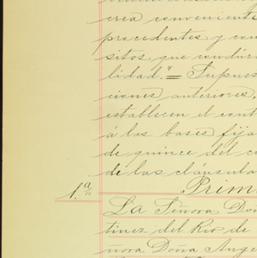 crea conveniente
procedentes y con
sitos que condu
lidad.= Supues
ciones anteriores,
establecen el cont
á las bases fija
de quince del c
de las cláusula
Prim
1.a
La Señora Do
tinez del Rio de
ñora Doña Ange